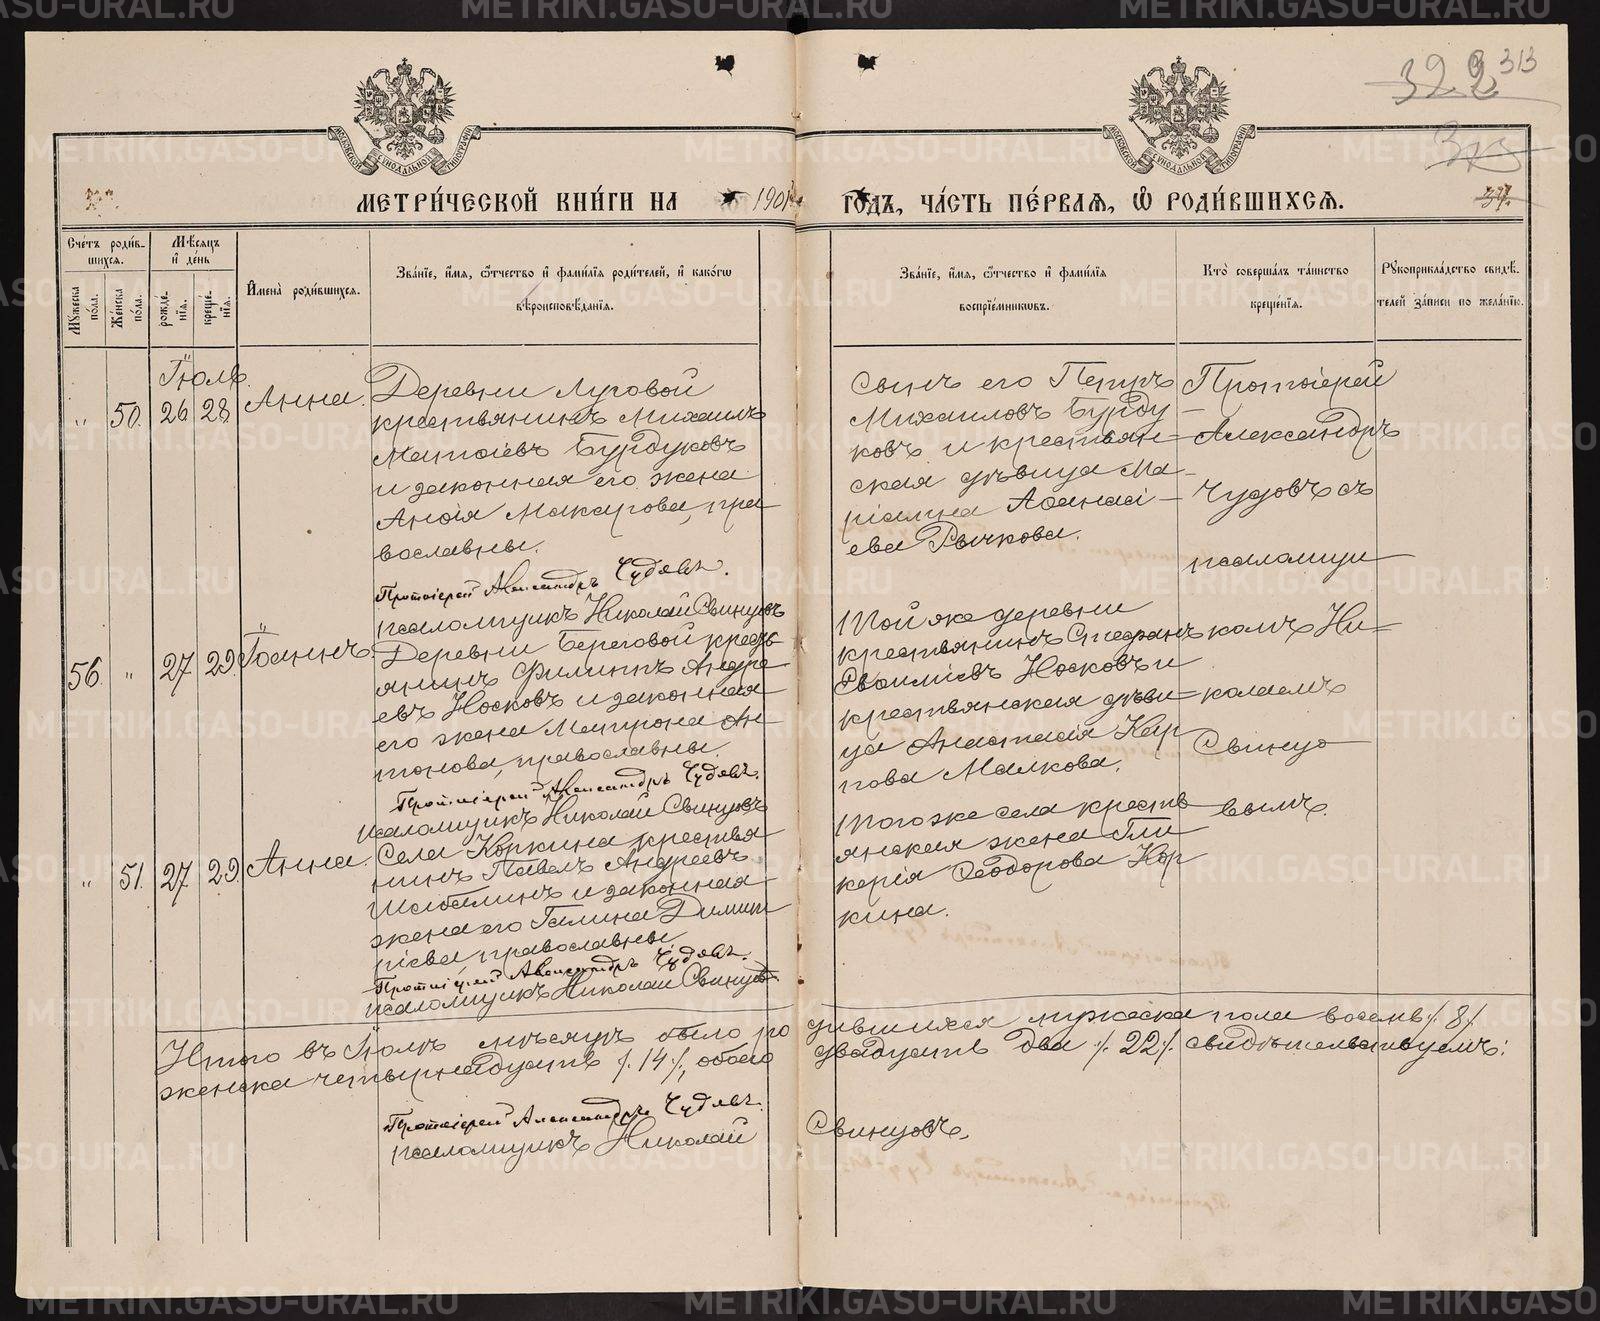 322 313
МЕТРИ́ЧЕСКОЙ КНИ́ГИ НА 1901 ГО́ДЪ, ЧА́СТЬ ПЕ́РВАѦ, Ѡ РОДИ́ВШИХСѦ.
37.
Сче́тъ роди́в-
шихсѧ.
Мѣ́сѧцъ
и де́нь
Му́жеска по́ла.
Же́нска по́ла.
рожде́-
нїѧ.
креще́-
нїѧ.
И҆мена̀ роди́вшихсѧ.
Зва́нїе, и́мѧ, ѻ҆́тчество и҆ фами́лїѧ роди́телей, и҆ како́гѡ
вѣроисповѣ́данїѧ.
Зва́нїе, и́мѧ, ѻ҆́тчество и҆ фами́лїѧ
воспрїе́мникѡвъ.
Кто̀ соверша́лъ та́инство
креще́нїѧ.
Рꙋкоприкла́дство свидѣ́-
телей за́писи по жела́нїю.
Іюль.
" 50. 26 28 Анна.
Деревни Луговой
крестьянинъ Михаилъ
Матѳіевъ Бурдуковъ
и законная его жена
Анѳія Макарова, пра
вославны.
Протоіерей Александръ Чудовъ.
псаломщикъ Николай Свинцовъ
Сынъ его Петръ
Михаиловъ Бурду
ковъ и крестьян=
ская дѣвица Ма-
ріамна Аѳанасі-
ева Рычкова.
Протоіерей
Александръ
Чудовъ съ
псаломщи
комъ Ни=
колаемъ
Свинцо
вымъ.
56. " 27 29 Іоаннъ.
Деревни Береговой кресть
янинъ Филиппъ Андре
евъ Носковъ и законная
его жена Матрона Ан
тонова, православны.
Протоіерей Александръ Чудовъ.
псаломщикъ Николай Свинцовъ
Той же деревни
крестьянинъ Стефанъ
Носковъ и
крестьянская дѣви=
ца Анастасія Кар
пова Малкова.
" 51. 27 29 Анна.
Села Коркина крестья
нинъ Павелъ Андреевъ
Шабалинъ и законная
жена его Галина Димит
ріева православны
Протоіерей Александръ Чудовъ.
псаломщикъ Николай Свинцовъ
Того же села кресть
янская жена Гли
керія Ѳеодорова Кор
кина.
Итого въ Іюлѣ мѣсяцѣ было ро дившихся мужеска пола восемь /. 8 /.
женска четырнадцать /. 14 /., обоего двадцать два /. 22 /. свидѣтельствуемъ:
Протоіерей Александръ Чудовъ.
псаломщикъ Николай Свинцовъ.
METRIKI.GASO-URAL.RU